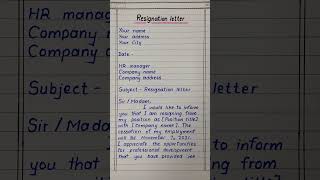 Resignation letter
Your name
Your address
Your City
Date -
HR manager
Company name
Company address
Subject - Resignation letter
Sir / Madam,
I would like to inform
you that I am resigning from
my position as [Position title]
with [Company name]. The
cessation of my employment
will be November 7, 2021.
I appreciate the opportunities
for professional development
that you have provided me